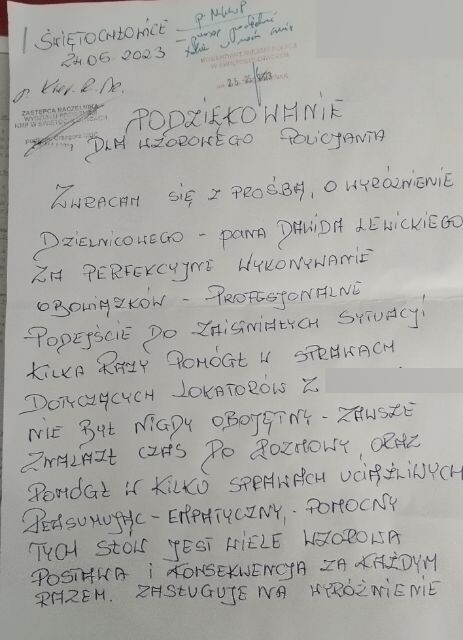 ŚWIĘTOCHŁOWICE
24.05.2023
p. NKWP
KOMENDANT MIEJSKI POLICJI
W ŚWIĘTOCHŁOWICACH
ZASTĘPCA NACZELNIKA
KMP W ŚWIĘTOCHŁOWICACH
PODZIĘKOWANIE
DLA WZOROWEGO POLICJANTA
ZWRACAM SIĘ Z PROŚBĄ, O WYRÓŻNIENIE
DZIELNICOWEGO - pana DAWIDA LEWICKIEGO
ZA PERFEKCYJNE WYKONYWANIE
OBOWIĄZKÓW - PROFESJONALNE
PODEJŚCIE DO ZAISNIAŁYCH SYTUACJI
KILKA RAZY POMÓGŁ W SPRAWACH
DOTYCZĄCYCH LOKATORÓW Z
NIE BYŁ NIGDY OBOJĘTNY - ZAWSZE
ZNALAZŁ CZAS DO ROZMOWY, ORAZ
POMÓGŁ W KILKU SPRAWACH UCIĄŻLIWYCH
REASUMUJĄC - EMPATYCZNY, POMOCNY
TYCH SŁÓW JEST WIELE WZOROWA
POSTAWA I KONSEKWENCJA ZA KAŻDYM
RAZEM. ZASŁUGUJE NA WYRÓŻNIENIE